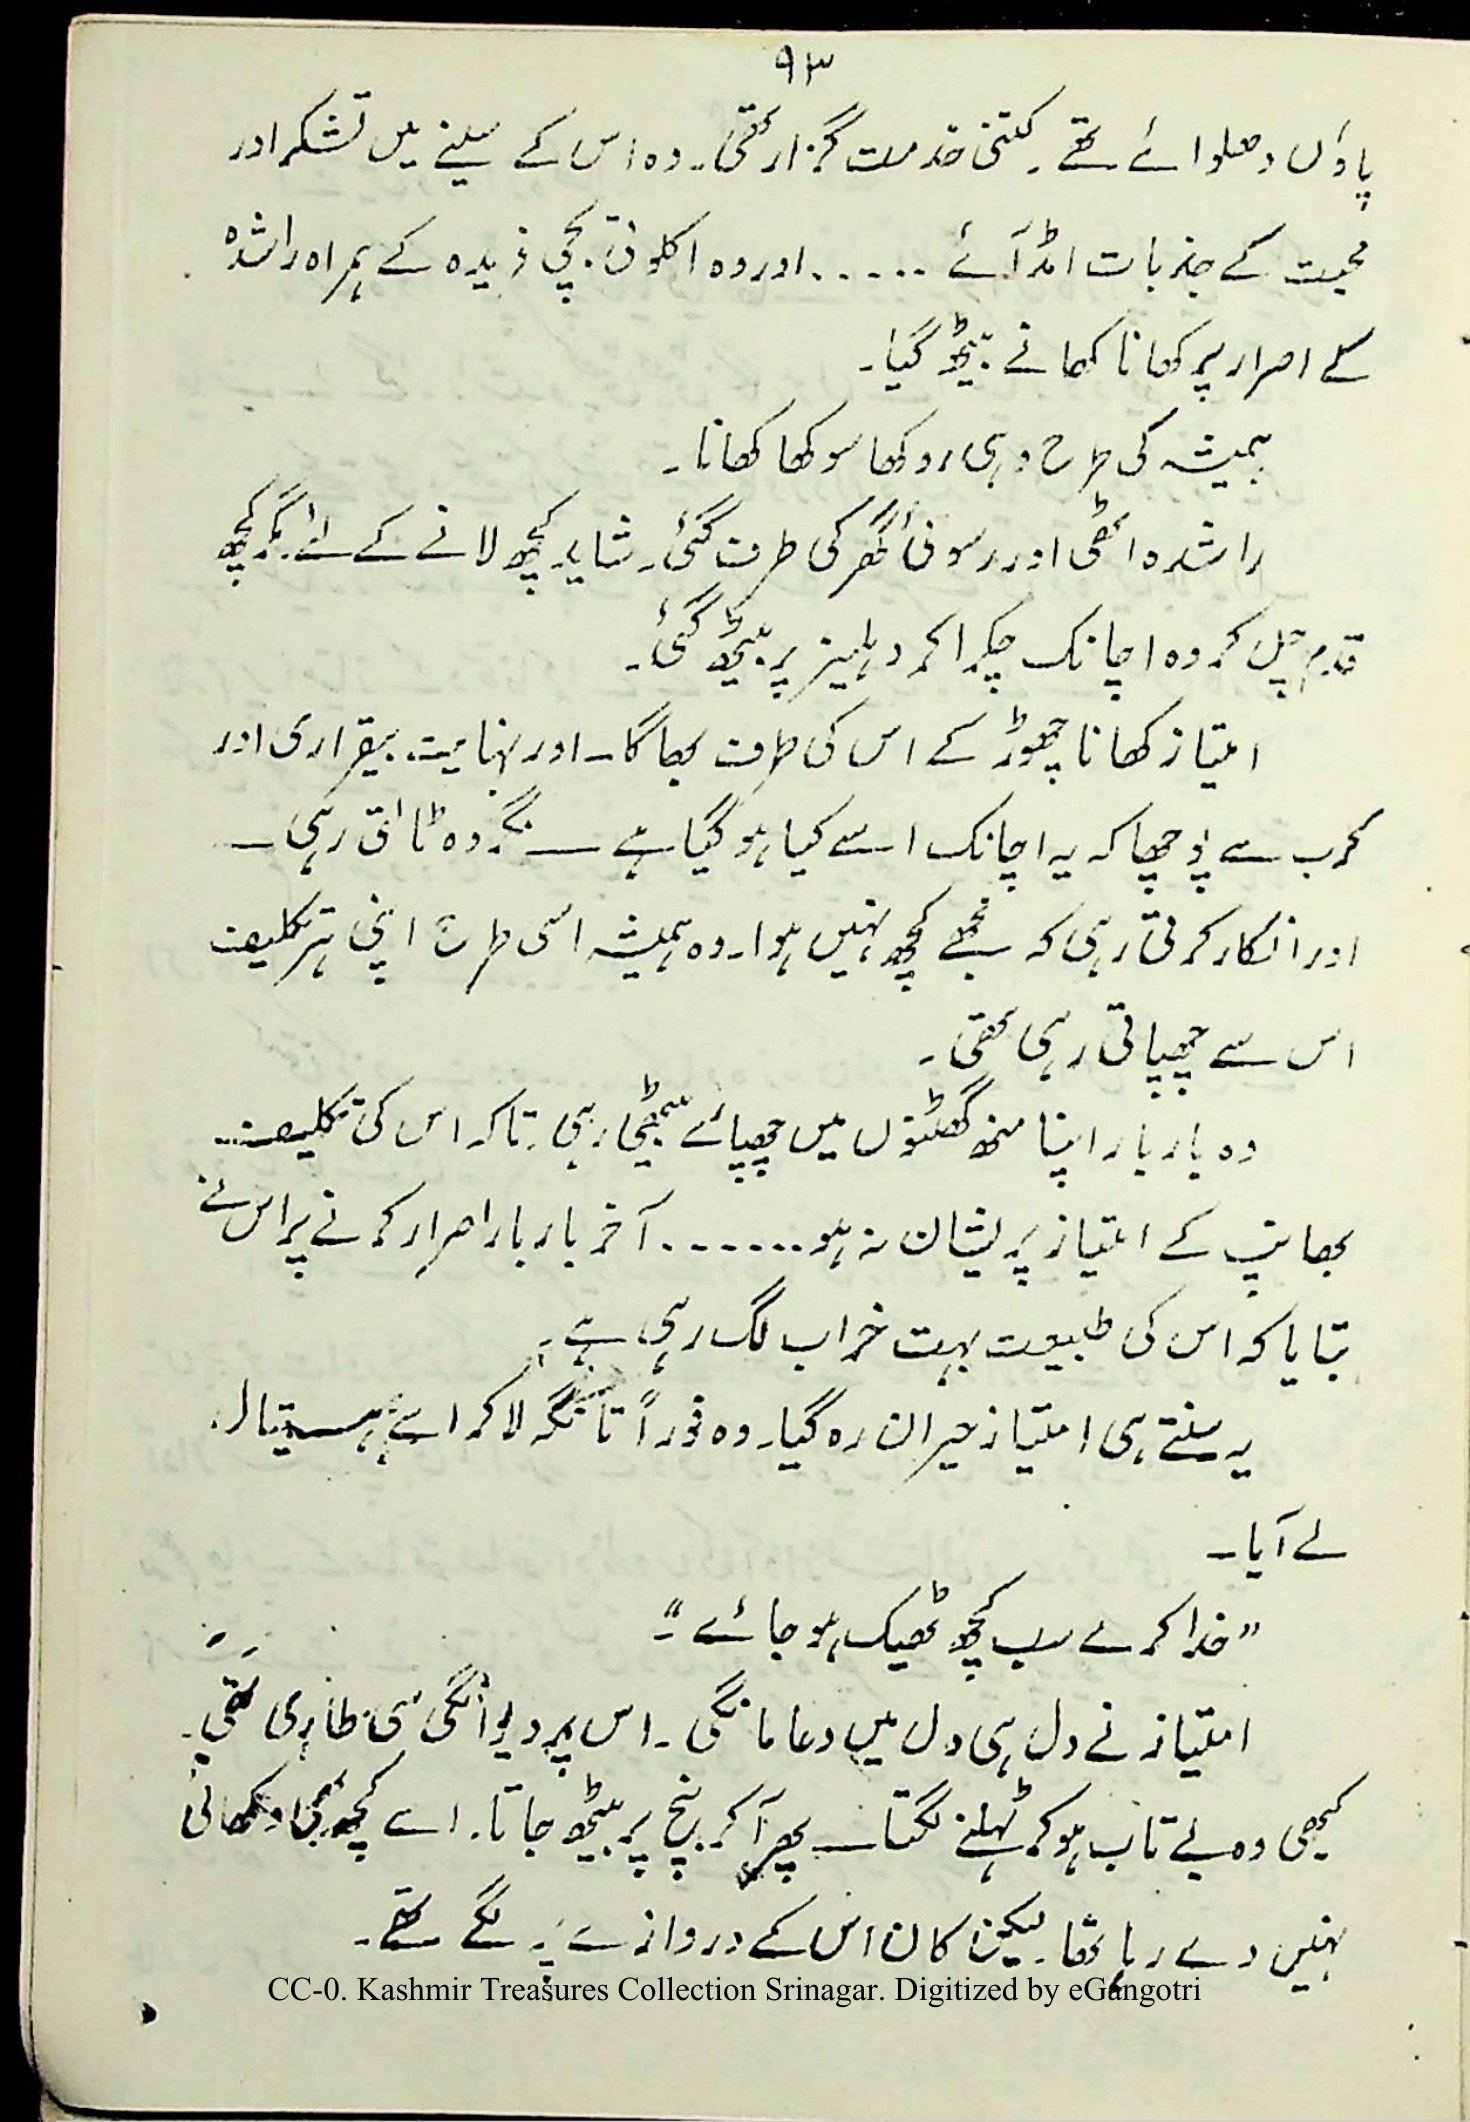 ۹۳
پاؤں دھلوائے تھے ۔ کتنی خدمت گزار تھی ۔ وہ اس کے سینے میں تشکر اور
محبت کے جذبات امڈ آئے ۔۔۔۔۔ اور وہ اکلوتی بچی فریدہ کے ہمراہ راشدہ
کے اصرار پر کھانا کھانے بیٹھ گیا ۔
ہمیشہ کی طرح وہی روکھا سوکھا کھانا ۔
راشدہ اٹھی اور رسوئی گھر کی طرف گئی ۔ شاید کچھ لانے کے لئے ۔ مگر کچھ
قدم چل کر وہ اچانک چکرا کر دہلیز پر بیٹھ گئی ۔
امتیاز کھانا چھوڑ کے اس کی طرف بھاگا ۔ اور نہایت بیقراری اور
کرب سے پوچھا کہ یہ اچانک اسے کیا ہو گیا ہے ـــ مگر وہ ٹالتی رہی ۔
اور انکار کرتی رہی کہ مجھے کچھ نہیں ہوا ۔ وہ ہمیشہ اسی طرح اپنی ہر تکلیف
اس سے چھپاتی رہی تھی ۔
وہ بار بار اپنا منھ گھٹنوں میں چھپائے بیٹھی رہی ۔ تاکہ اس کی تکلیف
بھانپ کے امتیاز پریشان نہ ہو ۔۔۔۔۔۔ آخر بار بار اصرار کرنے پر اس نے
بتایا کہ اس کی طبیعت بہت خراب لگ رہی ہے ۔
یہ سنتے ہی امتیاز حیران رہ گیا ۔ وہ فوراً تانگہ لا کر اسے ہسپتال
لے آیا ۔
”خدا کرے سب کچھ ٹھیک ہو جائے ۔“
امتیاز نے دل ہی دل میں دعا مانگی ۔ اس پر دیوانگی سی طاری تھی ۔
کبھی وہ بے تاب ہو کر ٹہلنے لگتا ـــ پھر آ کر بنچ پر بیٹھ جاتا ۔ اسے کچھ بھی دکھائی
نہیں دے رہا تھا ۔ لیکن کان اس کے دروازے پہ لگے تھے ۔
CC-0. Kashmir Treasures Collection Srinagar. Digitized by eGangotri